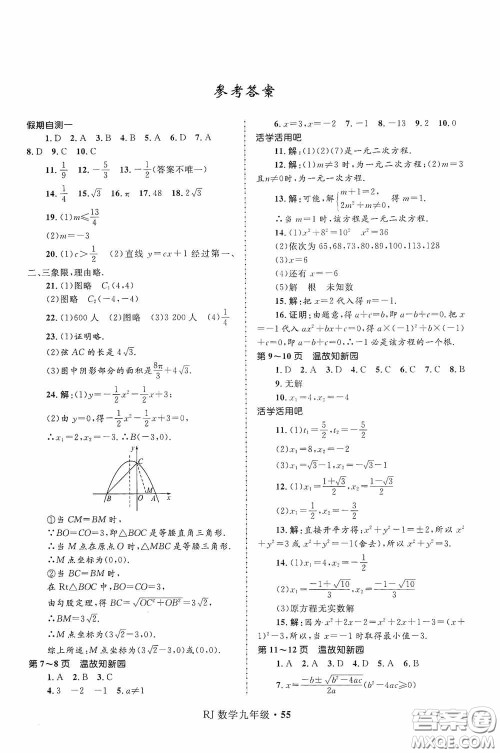 参考答案
假期自测一
1. D 2. A 3. C 4. B 5. D 6. A 7. A
8. D 9. C 10. C
11. 1/9 12. -5/3 13. -1/2(答案不唯一)
14. 1/4 15. √3 16. π 17. 48 18. 2√3
19. (1)m≤13/4
(2)m=-3
20. (1)c>1/2 (2)直线 y=cx+1 经过第一、
二、三象限,理由略.
21. (1)图略 C₁(4,4)
(2)图略 C₂(-4,-4)
22. (1)600人 (2)图略 (3)3 200人 (4)1/4
23. (1)证明略.
(2)弦AC的长是4√3.
(3)图中阴影部分的面积是8π/3+4√3.
24. 解:(1)y=-1/2x²-1/2x+3.
(2)由y=0,得-1/2x²-1/2x+3=0.
∴x₁=2,x₂=-3. ∴B(-3,0).
y
C
B O M A x
①当CM=BM时,
∵BO=CO=3,即△BOC是等腰直角三角形.
∴当M点在原点O时,△MBC是等腰三角形.
∴M点坐标为(0,0).
②当BC=BM时,
在Rt△BOC中,BO=CO=3,
由勾股定理,得BC=√OC²+OB²=3√2.
∴BM=3√2.
∴M点坐标为(3√2-3,0).
综上所述:M点坐标为(3√2-3,0)或(0,0).
第7~8页 温故知新园
1. D 2. A 3. D
4. 3 -5 -2 5. x(x-1)=110
6. x=3,x=-3 7. -1 8. -13 9. 2 10. 0
活学活用吧
11. 解:(1)(2)(7)是一元二次方程.
12. 解:(1)m≠3时,为一元二次方程;(2)m=3
且n≠0时,为一元一次方程.
13. 解:可能,解{m+1=2, 2m²+m≠0, 得m=1.
∴当m=1时,该方程是一元二次方程.
14. (1)x²+8=10x x²=36
(2)依次为65,68,73,80,89,100,113,128
(3)略
(4)还有x=-6
(5)解 根 未知数
15. 解:x=1或x=-3
16. 证明:由题意,得a+c=b,即a-b+c=0. 把x=
-1代入ax²+bx+c=0,得a-b+c=0,故-1必是
该方程的一个根.
第9~10页 温故知新园
1. D 2. A 3. D 4. C 5. C 6. C 7. C 8. B
9. 无解
10. x₁=4,x₂=-4
活学活用吧
11. (1)t₁=5/2,t₂=-5/2
(2)x₁=8,x₂=-2
12. (1)x₁=(1+√3)/2,x₂=(1-√3)/2
(2)x₁=1/2,x₂=-1/2
13. 解:直接开平方,得x²+y²-1=±2,所以x²+
y²=3或x²+y²=-1(舍去),所以x²+y²=3.
14. (1)x₁=1,x₂=4
(2)x₁=(-1+√10)/3,x₂=(-1-√10)/3
(3)原方程无实数解
15. 解:因为x²+2x-2=x²+2x+1-3=(x+1)²-
3≥-3,所以当x=-1时,x²+2x-2取得最小值,最
小值是-3.
第11~12页 温故知新园
1. A 2. D 3. A 4. A 5. C 6. B
7. x=(-b±√b²-4ac)/2a (b²-4ac≥0)
RJ 数学九年级·55